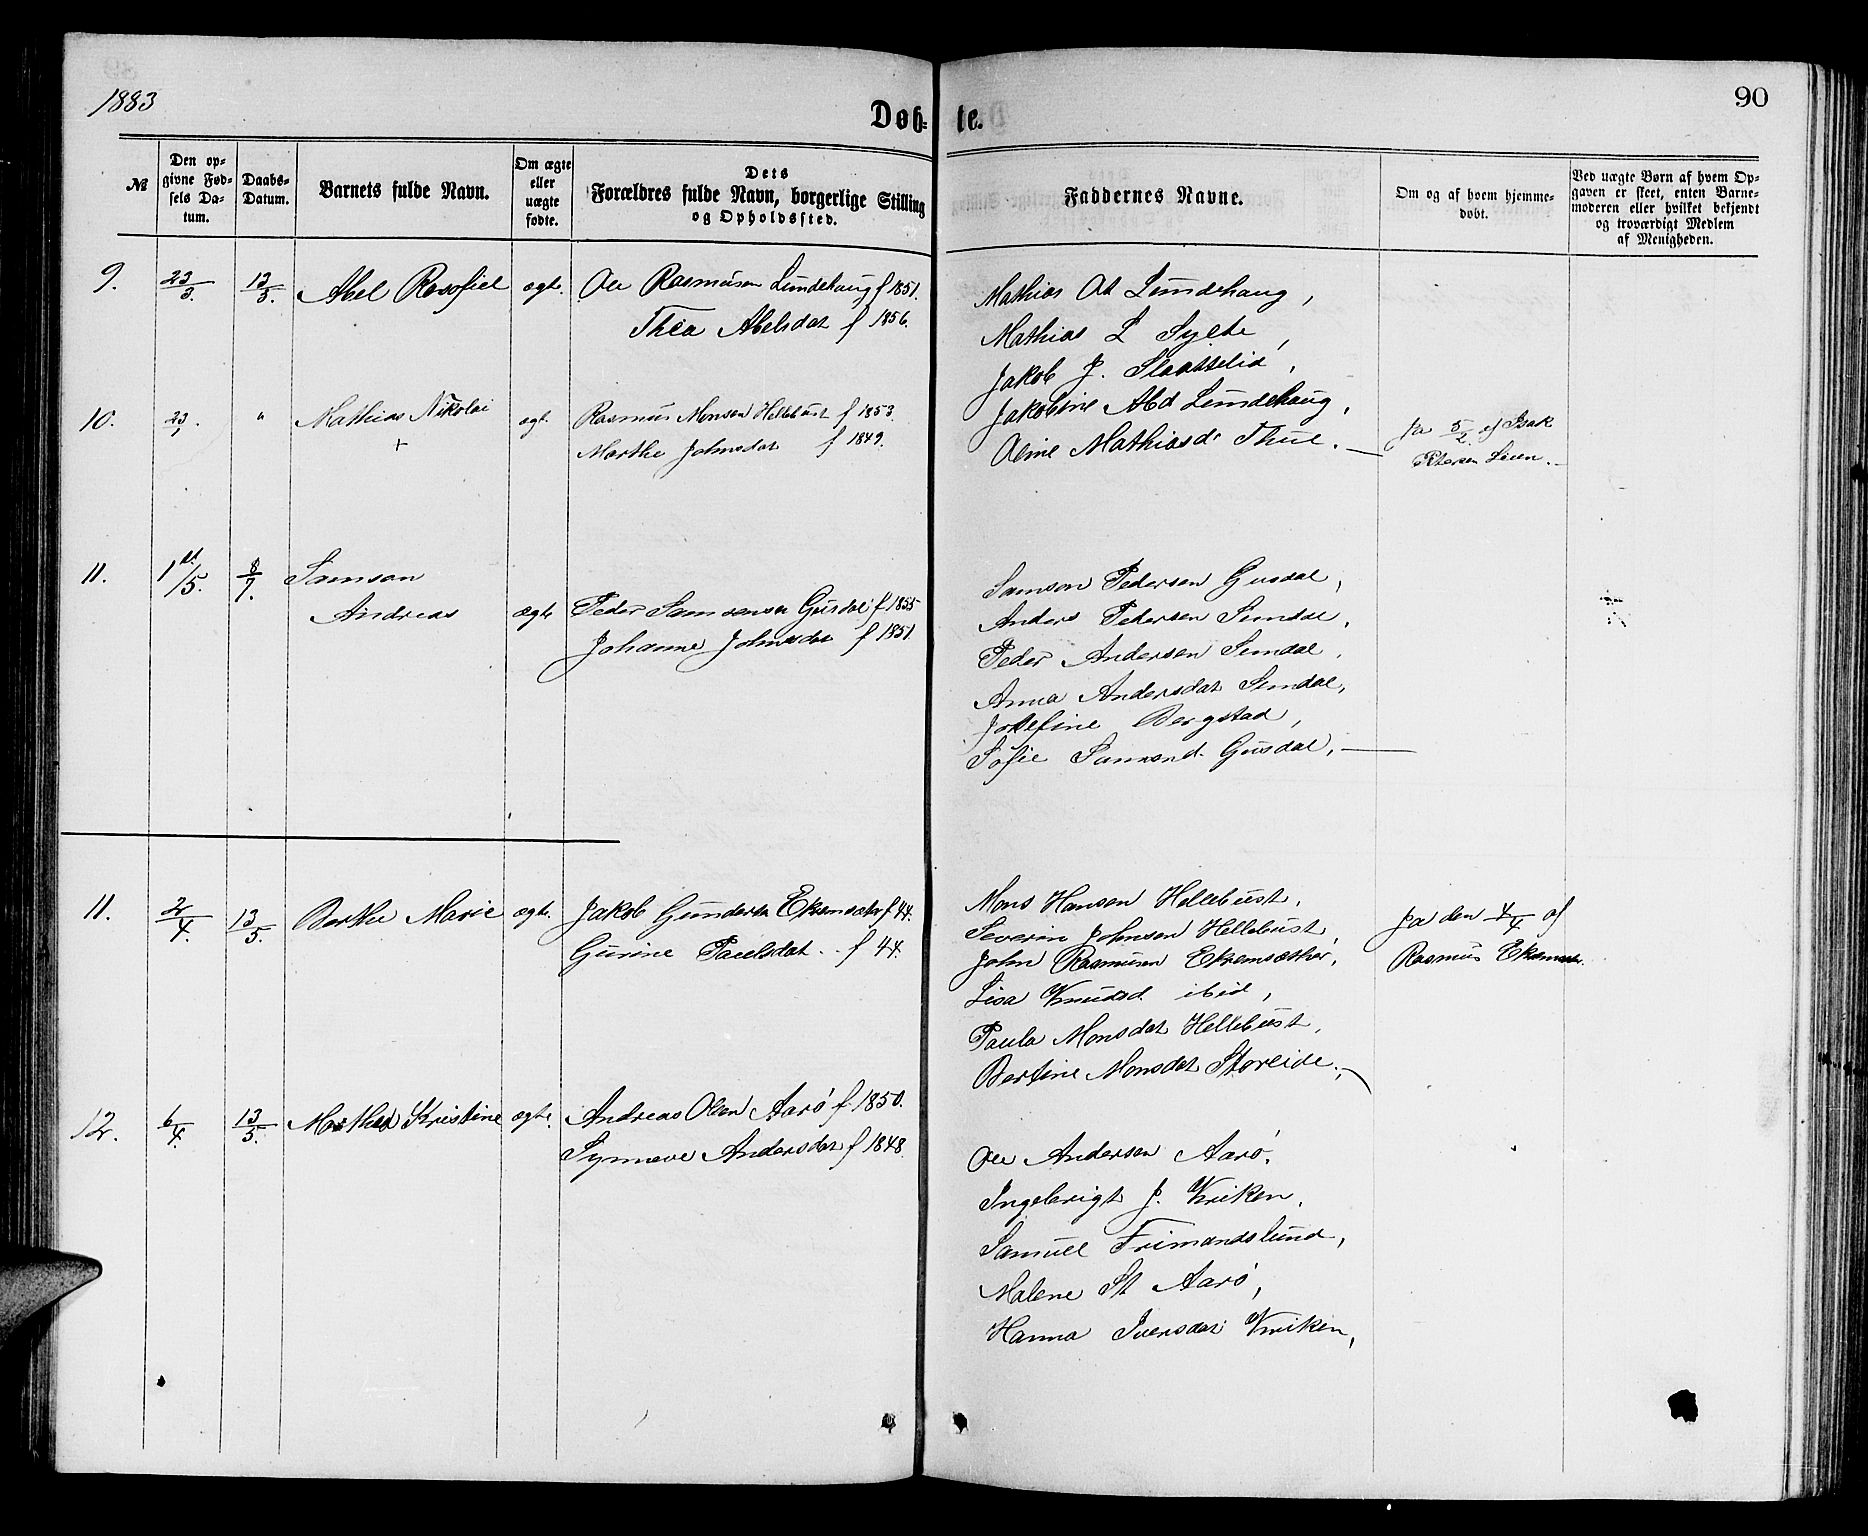 1883
90
Døb- te.
№
Den op-
givne Fød-
sels Da-
tum.
Daabs-
Datum.
Barnets fulde Navn.
Om ægte
eller
uægte
fødte.
Dets
Forældres fulde Navn, borgerlige Stilling
og Opholdssted.
Faddernes Navne.
Om og af hvem hjemme-
døbt.
Ved uægte Børn af hvem Op-
gaven er skeet, enten Barne-
moderen eller hvilket bekjendt
og troværdigt Medlem
af Menigheden.
9. 23/3. 13/5. Abel Rosofiel ægt. Ole Rasmusen Lundehaug f 1851.
Thea Abelsdat f 1856.
Mathias Ol Lundehaug,
Mathias L Sylte,
Jakob J. Slaattelid,
Jakobine Abd Lundehaug,
Oline Mathiasd. Thue.
10. 23/1. " Mathias Nikolai ægt. Rasmus Monsen Hellebust f 1853.
+ Marthe Johnsdat f 1849.
Ja 5/2 af Isak
Petersen Lien.
11. 1st/5. 8/7. Samson
Andreas ægte Peder Samsonsen Gusdal f 1855
Johanne Johnsdat f 1851.
Samson Pedersen Gusdal,
Anders Pedersen Sundal,
Peder Andersen Sundal,
Anna Andersdat Sundal,
Josefine Bergstad,
Sofie Samsond. Gusdal,
11. 2/4. 13/5. Berthe Marie ægte. Jakob Gundersen Ekremsæter f 44.
Gurine Paulsdat. f 44.
Mons Hansen Hellebust,
Severin Johnsen Hellebust,
John Rasmusen Ekremsæther,
Lisa Knudsd ibid,
Paula Monsdat Hellebust,
Bertine Monsdat Storeide.
Ja den 4/4 af
Rasmus Ekremsæter.
12. 6/4. 13/5. Mathea Kristine ægte. Andreas Olsen Aarø f 1850.
Synneve Andersdat f 1848.
Ole Andersen Aarø,
Ingebrigt J. Kviken,
Samuel Frimandslund,
Malene St Aarø,
Hanna Iversdat Kviken,